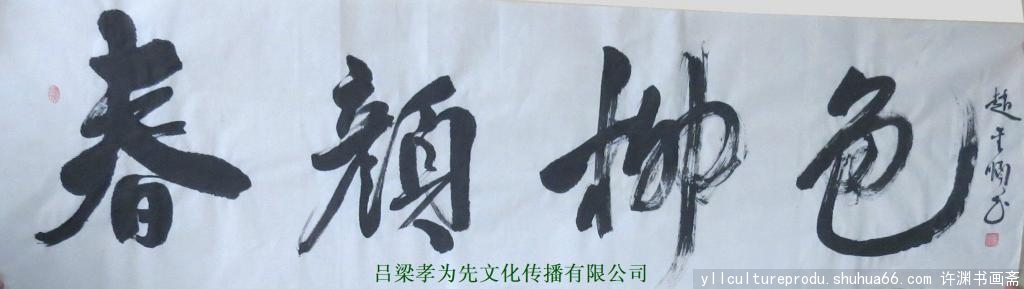 春颜柳色
吕梁孝为先文化传播有限公司
yllcultureprodu.shuhua66.com 许渊书画斋